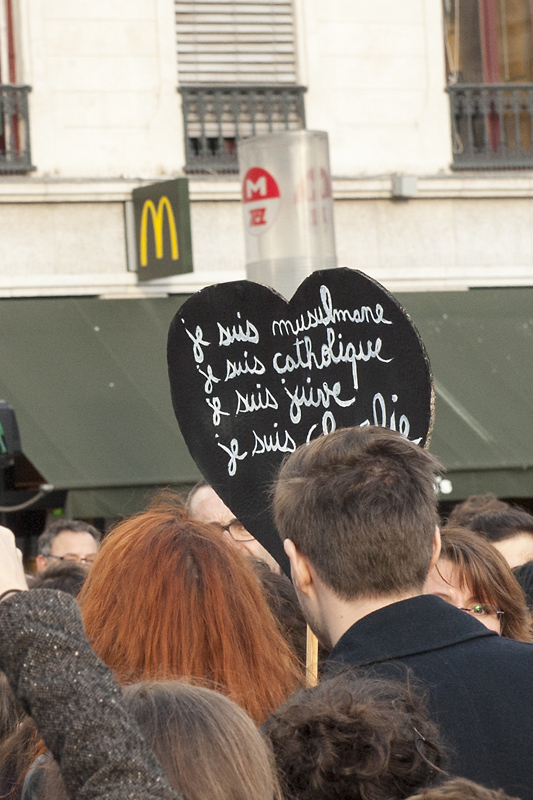 M
TCL
je suis musulmane
je suis catholique
je suis juive
je suis Charlie